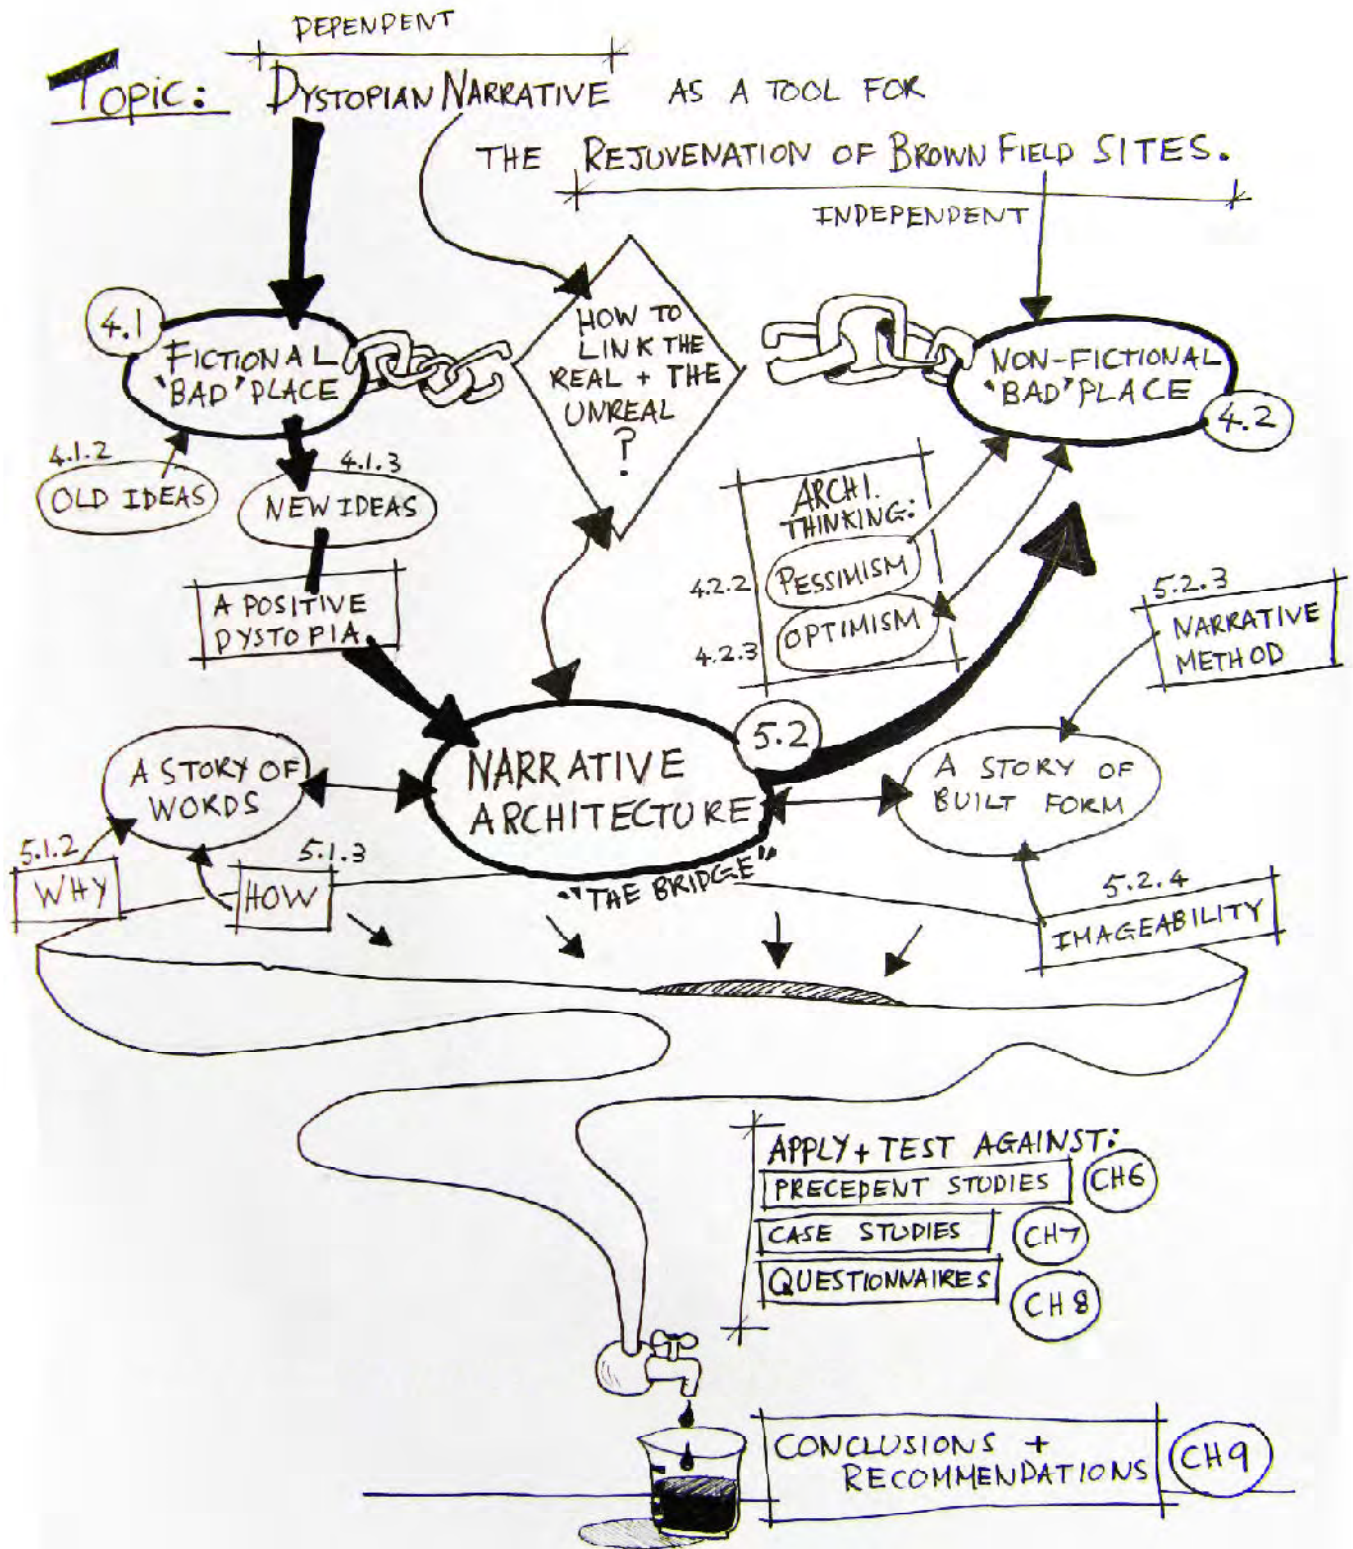 DEPENDENT
TOPIC: DYSTOPIAN NARRATIVE AS A TOOL FOR
THE REJUVENATION OF BROWN FIELD SITES.
INDEPENDENT
4.1
FICTIONAL
"BAD" PLACE
HOW TO
LINK THE
REAL + THE
UNREAL
?
NON-FICTIONAL
"BAD" PLACE
4.2
4.1.2
OLD IDEAS
4.1.3
NEW IDEAS
A POSITIVE
DYSTOPIA
ARCHI.
THINKING:
4.2.2
PESSIMISM
4.2.3
OPTIMISM
5.2.3
NARRATIVE
METHOD
5.2
NARRATIVE
ARCHITECTURE
"THE BRIDGE"
A STORY OF
WORDS
A STORY OF
BUILT FORM
5.1.2
WHY
5.1.3
HOW
5.2.4
IMAGEABILITY
APPLY + TEST AGAINST:
PRECEDENT STUDIES CH6
CASE STUDIES CH7
QUESTIONNAIRES CH8
CONCLUSIONS +
RECOMMENDATIONS CH9